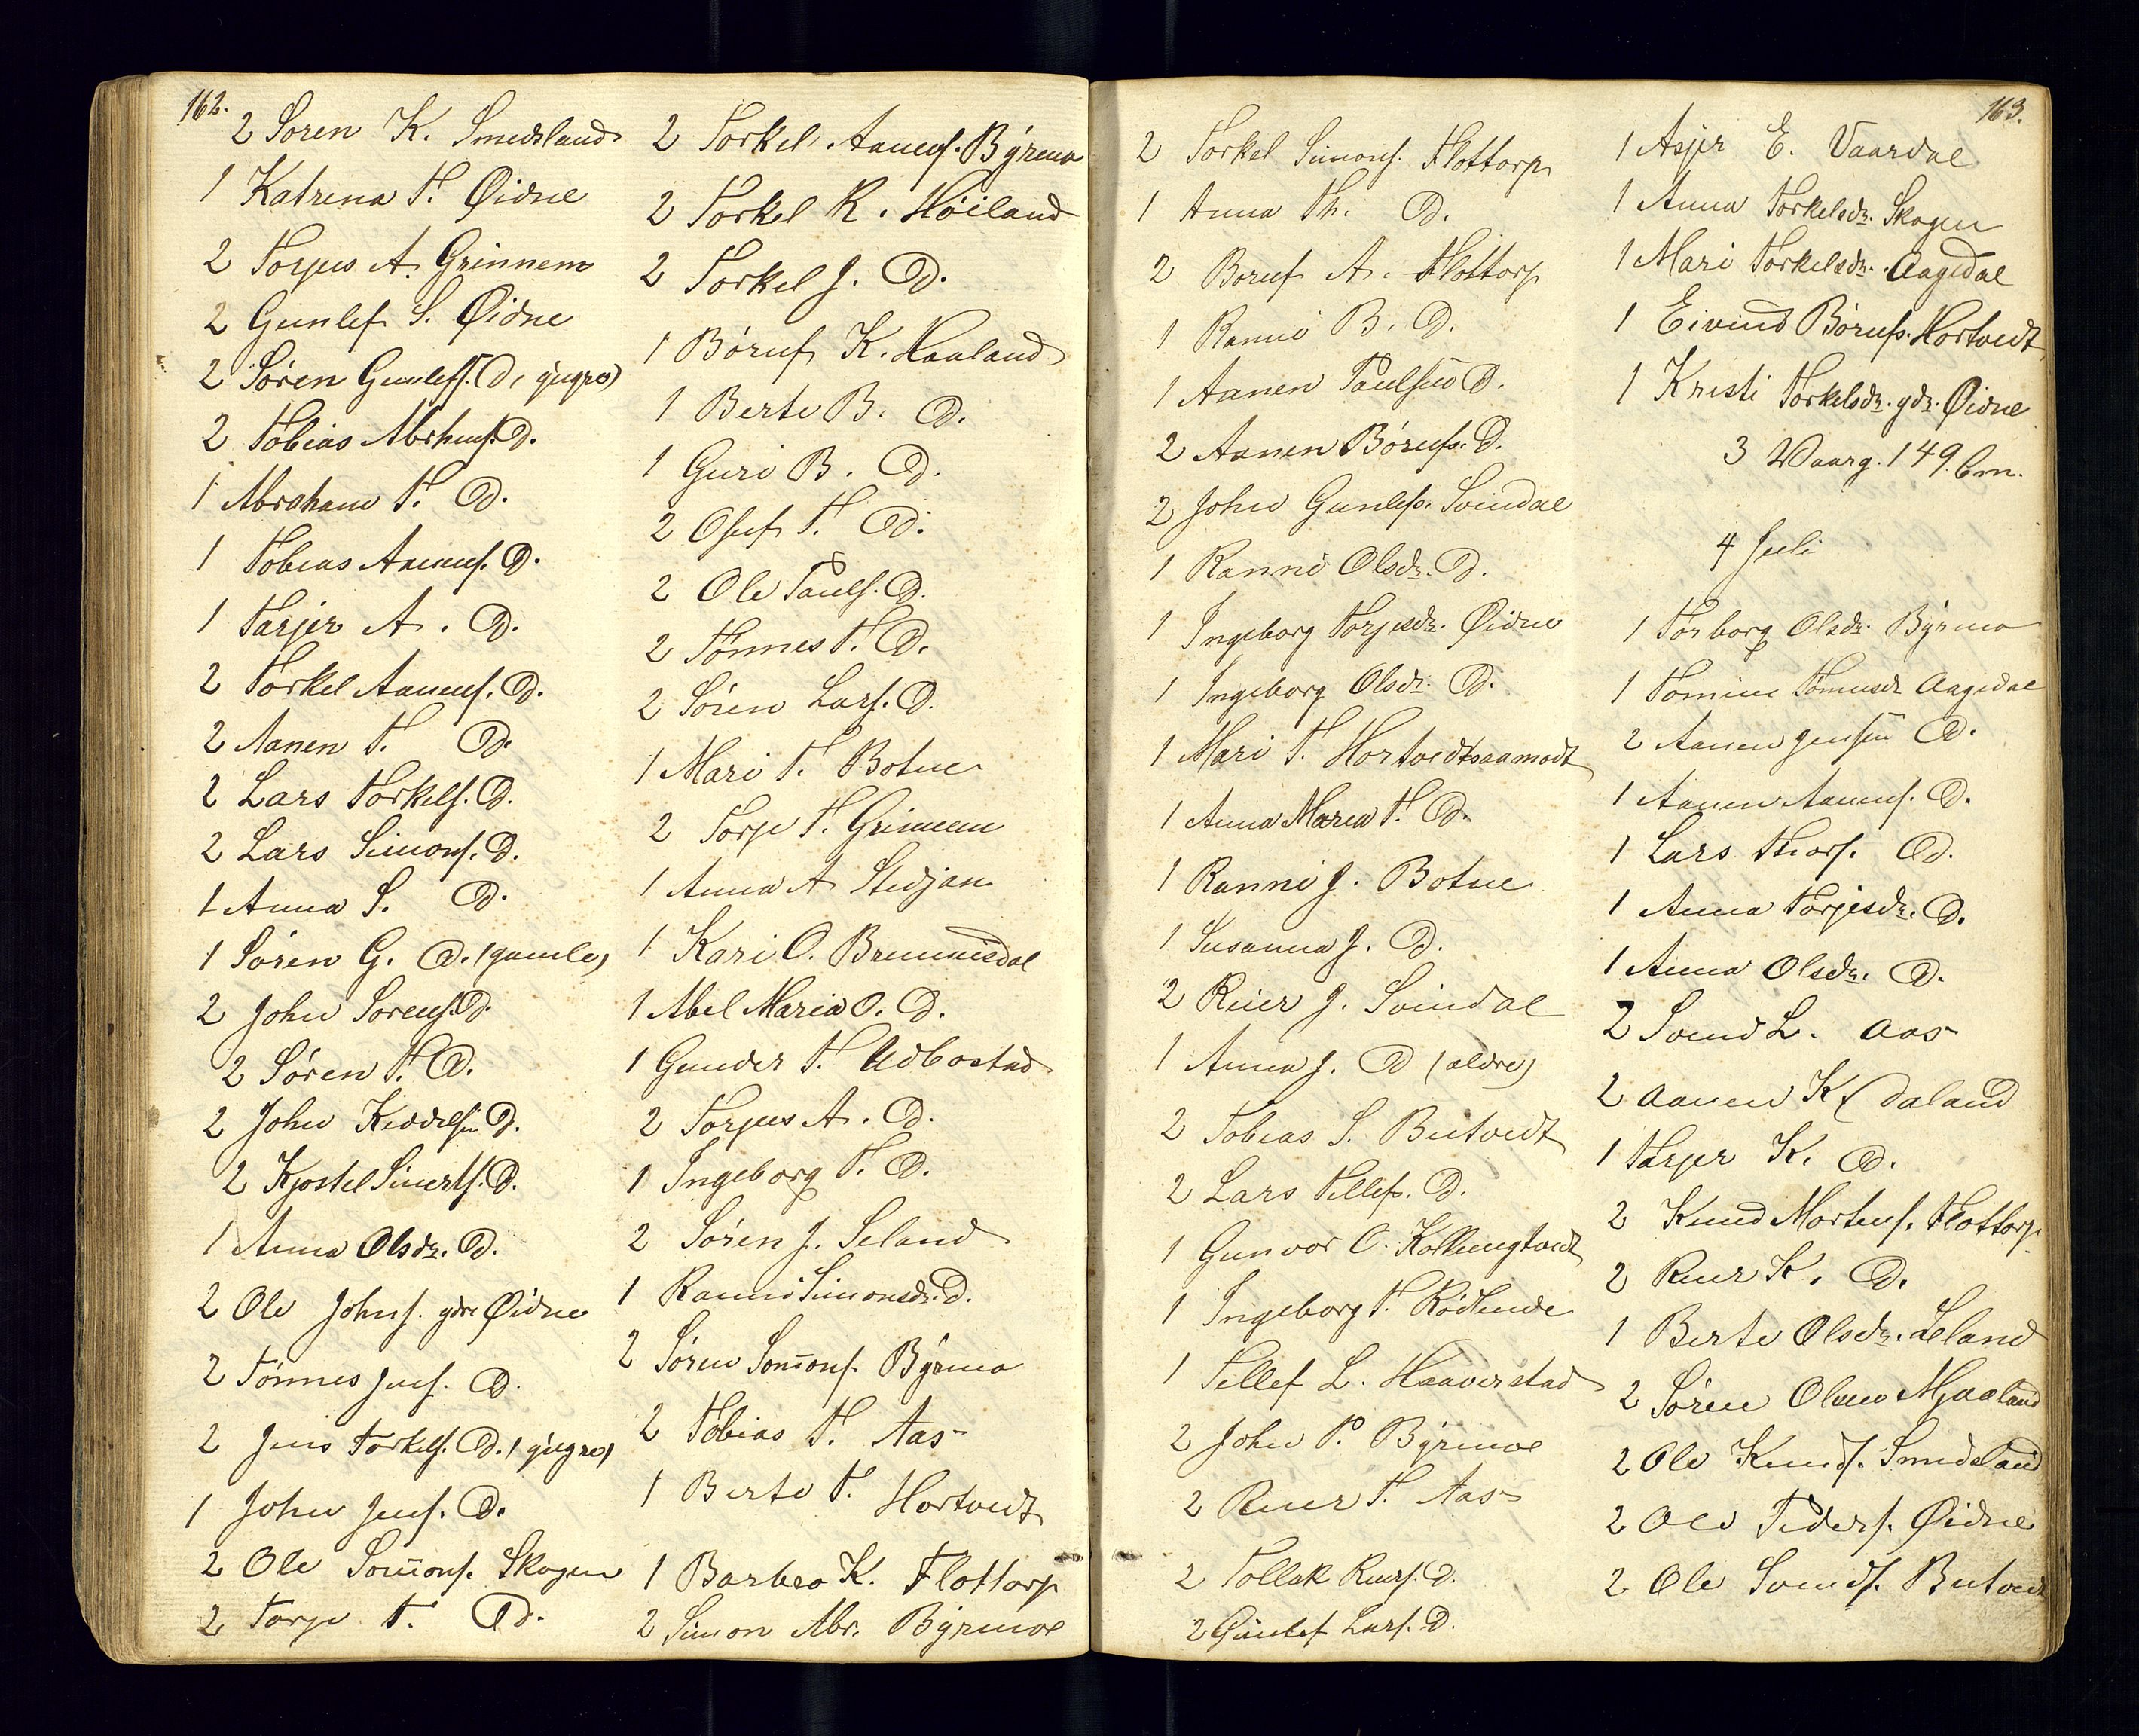 162.
2 Soren K. Smedsland
1 Katrena T. Øidne
2 Torjus A. Grinnem
2 Gunlef S. Øidne
2 Søren Gunlefs. D. (yngre)
2 Tobias Abrhms. D.
1 Abraham T. D.
1 Tobias Aanens. D.
1 Tarjer A. D.
2 Torkel Aanens. D.
2 Aanen T. D.
2 Lars Torkels. D.
2 Lars Simons. D.
1 Anna S. D.
1 Søren G. D. (gamle)
2 John Sorens. D.
2 Søren T. D.
2 John Keddelsen D.
2 Kjostel Siverts. D.
1 Anna Olsdr. D.
2 Ole Johns. ydr. Øidne
2 Tønnes Jens. D.
2 Jens Torkels. D. (yngre)
1 John Jens. D.
2 Ole Som̄ons. Skogen
2 Torje T. D.
2 Torkel Aanens. Byrmo
2 Torkel K. Høiland
2 Torkel J. D.
1 Børuf K. Haaland
1 Berte B. D.
1 Guri B. D.
2 Osuf T. D.
2 Ole Pauls. D.
2 Tønnes T. D.
2 Søren Lars. D.
1 Mari T. Botne
2 Torje T. Grimeem
1 Anna A. Stedjan
1 Kari O. Brunnisdal
1 Abel Maria O. D.
1 Gunder T. Udbostad
2 Torjus A. D.
1 Ingeborg T. D.
2 Søren J. Seland
1 Ranni Simonsdr. D.
2 Søren Som̄ons. Byrmo
2 Tobias T. Aas
1 Berte T. Hortvedt
1 Barbro K. Flottorp
2 Simon Abr. Byrmoe
2 Torkel Simons. Flottorp
1 Anna Th. D.
2 Boruf A. Flottorp
1 Ranni B. D.
1 Aanen Paulsen D.
2 Aanen Børufs. D.
2 John Gunlefs. Svindal
1 Ranni Olsdr. D.
1 Ingeborg Torjesdr. Øidne
1 Ingeborg Olsdr. D.
1 Mari T. Hortvedtsaamodt
1 Anna Maria T. D.
1 Ranni J. Botne
1 Susanna J. D.
2 Reier J. Svindal
1 Anna J. D (ældre)
2 Tobias S. Butvedt
2 Lars Tellefs. D.
1 Gunvor O. Kollungtvedt
1 Ingeborg T. Rødlende
1 Tellef L. Haaverstad
2 John P. Byrmoe
2 Reier T. Aas
2 Tollak Reiers. D.
2 Gunlef Lars. D.
163.
1 Asjer E. Vaardal
1 Anna Torkelsdr. Skogen
1 Mari Torkelsdr. Aagedal
1 Eivind Børufs. Hortvedt
1 Kristi Torkelsdr. ydr. Øidne
3 Vaarg. 149 Cm.
4 Juli
1 Torborg Olsdr. Byrmo
1 Tomine Tomesdr Aagedal
2 Aanen Jensen D.
1 Aanen Aanens. D.
1 Lars Thors. D.
1 Anna Torjesdr. D.
1 Anna Olsdr. D.
2 Svend L. Aas
2 Aanen K. Daland
1 Tarjer K. D.
2 Knud Mortens. Flottorp
2 Reier K. D.
1 Berte Olsdr. Leland
2 Søren Olsen Mjaaland
2 Ole Knuds. Smedsland
2 Ole Peders. Øidne
2 Ole Svends. Butvedt